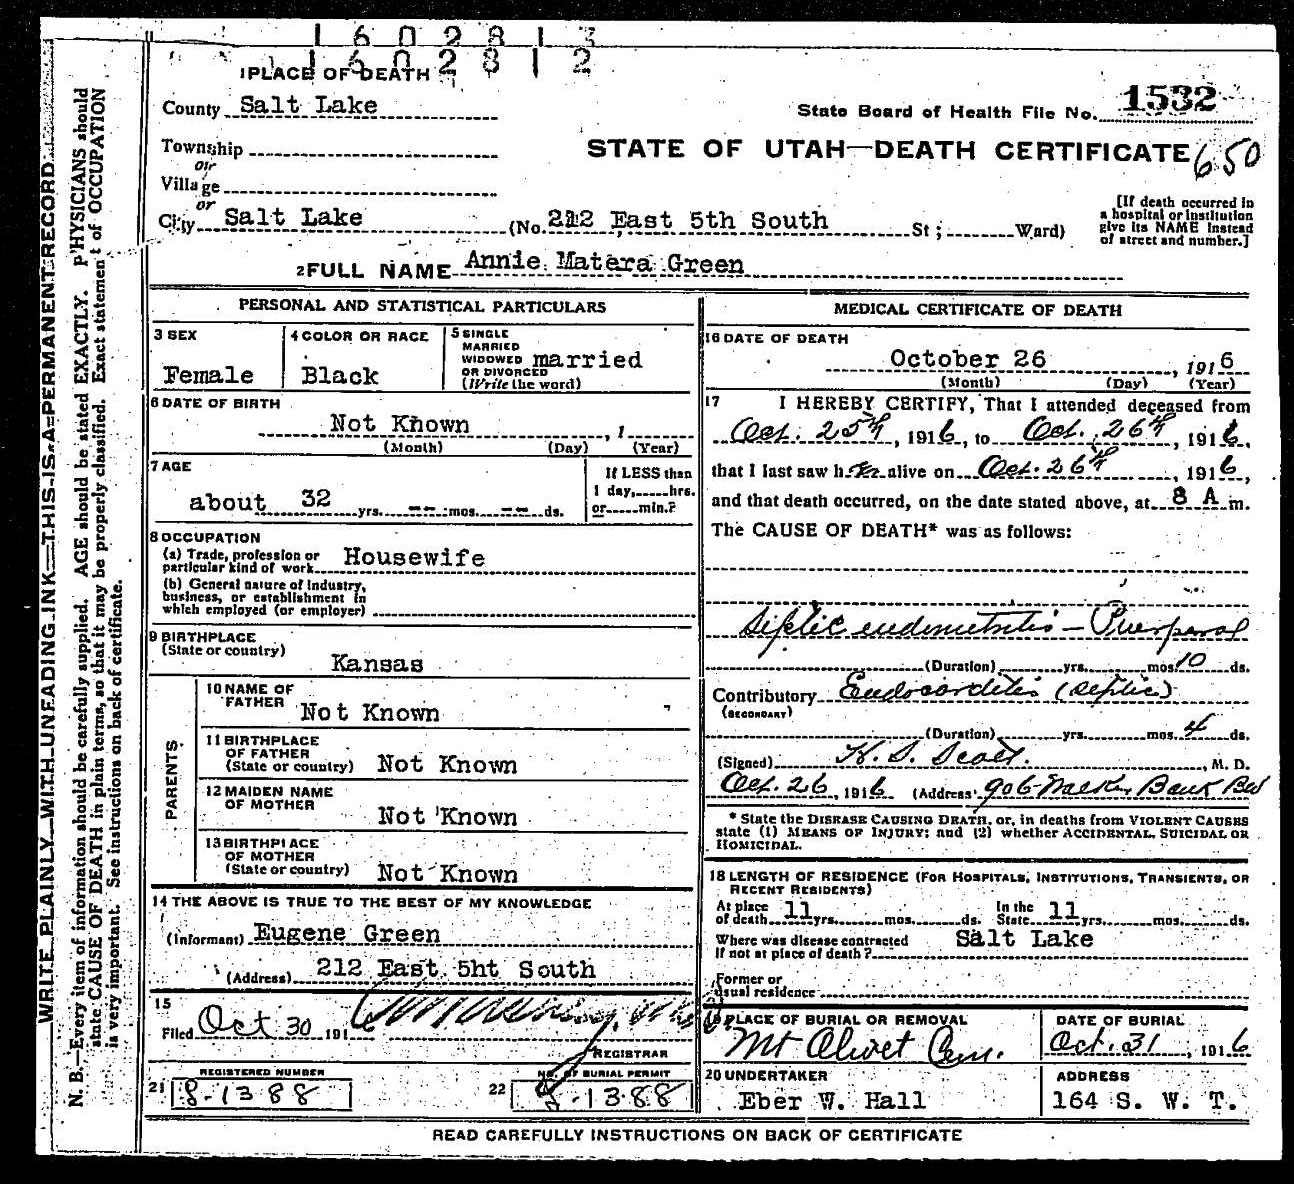 1602813
1602812
1 PLACE OF DEATH
County Salt Lake
State Board of Health File No. 1532
Township
or
Village
or
STATE OF UTAH—DEATH CERTIFICATE 650
City Salt Lake (No. 212 East 5th South St; Ward)
[If death occurred in
a hospital or institution
give its NAME instead
of street and number.]
2 FULL NAME Annie Matera Green
PERSONAL AND STATISTICAL PARTICULARS
3 SEX
Female
4 COLOR OR RACE
Black
5 SINGLE
MARRIED
WIDOWED married
OR DIVORCED
(Write the word)
6 DATE OF BIRTH
Not Known , 1
(Month) (Day) (Year)
7 AGE
about 32 yrs. -- mos. -- ds.
If LESS than
1 day, hrs.
or min.?
8 OCCUPATION
(a) Trade, profession or
particular kind of work Housewife
(b) General nature of industry,
business, or establishment in
which employed (or employer)
9 BIRTHPLACE
(State or country)
Kansas
PARENTS.
10 NAME OF
FATHER Not Known
11 BIRTHPLACE
OF FATHER
(State or country) Not Known
12 MAIDEN NAME
OF MOTHER Not Known
13 BIRTHPLACE
OF MOTHER
(State or country) Not Known
14 THE ABOVE IS TRUE TO THE BEST OF MY KNOWLEDGE
(Informant) Eugene Green
(Address) 212 East 5ht South
15
Filed Oct 30 1916
REGISTRAR
REGISTERED NUMBER
21 8-1388
NO. OF BURIAL PERMIT
22 8-1388
MEDICAL CERTIFICATE OF DEATH
16 DATE OF DEATH
October 26 , 1916
(Month) (Day) (Year)
17 I HEREBY CERTIFY, That I attended deceased from
Oct. 25th, 1916, to Oct. 26th, 1916,
that I last saw her alive on Oct. 26th, 1916,
and that death occurred, on the date stated above, at 8 A m.
The CAUSE OF DEATH* was as follows:
Septic endometritis – Puerperal
(Duration) yrs. mos. 10 ds.
Contributory Endocarditis (septic)
(SECONDARY)
(Duration) yrs. mos. 4 ds.
(Signed) H. S. Scott. , M. D.
Oct. 26, 1916 (Address) 906 Walker Bank Bld
* State the DISEASE CAUSING DEATH, or, in deaths from VIOLENT CAUSES
state (1) MEANS OF INJURY; and (2) whether ACCIDENTAL, SUICIDAL OR
HOMICIDAL.
18 LENGTH OF RESIDENCE (FOR HOSPITALS, INSTITUTIONS, TRANSIENTS, OR
RECENT RESIDENTS)
At place In the
of death 11 yrs. mos. ds. State 11 yrs. mos. ds.
Where was disease contracted Salt Lake
if not at place of death?
Former or
usual residence
19 PLACE OF BURIAL OR REMOVAL
Mt Olivet Cem.
DATE OF BURIAL
Oct. 31, 1916
20 UNDERTAKER
Eber W. Hall
ADDRESS
164 S. W. T.
READ CAREFULLY INSTRUCTIONS ON BACK OF CERTIFICATE
WRITE PLAINLY WITH UNFADING INK—THIS IS A PERMANENT RECORD
N. B.—Every item of information should be carefully supplied. AGE should be stated EXACTLY. PHYSICIANS should
state CAUSE OF DEATH in plain terms, so that it may be properly classified. Exact statement of OCCUPATION
is very important. See instructions on back of certificate.